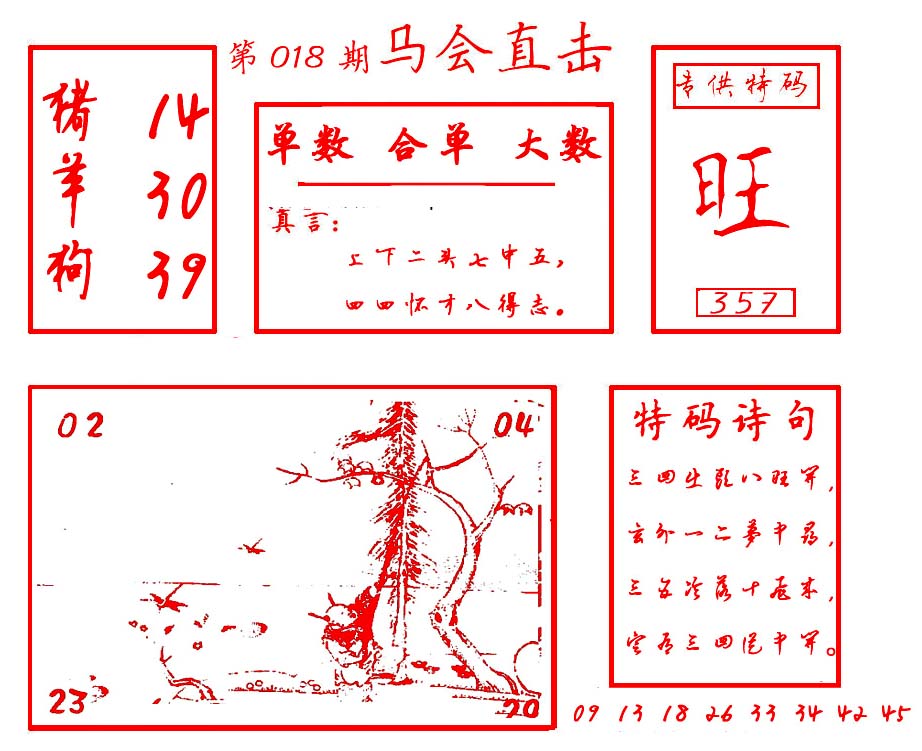 第 018 期 马会直击
猪 14
羊 30
狗 39
单数 合单 大数
真言：
上下二头七中五，
四四怀才八得志。
专供特码
旺
357
02
04
23
20
特码诗句
三四生 八旺
一二梦中寻，
三五冷落十
三四 中
09 13 18 26 33 34 42 45